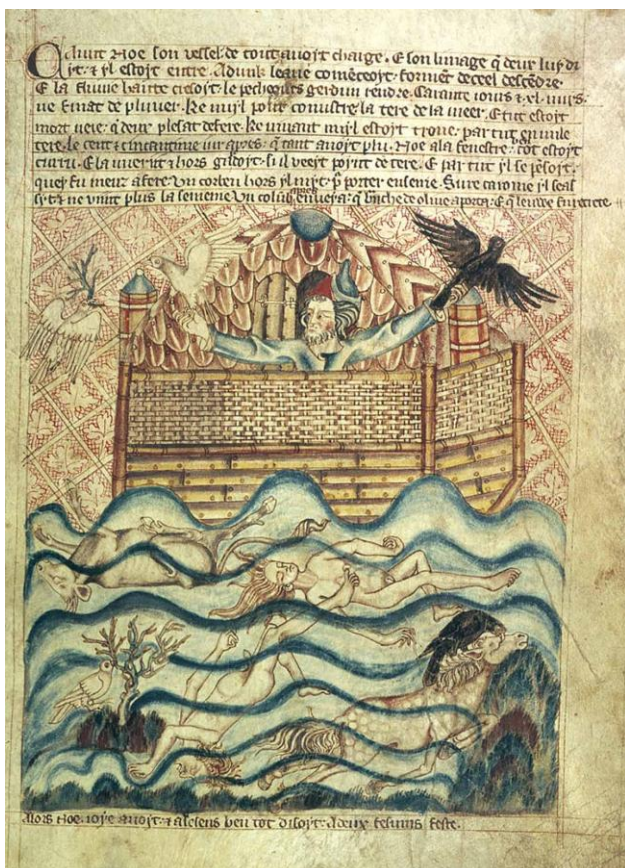 Quant Noe son vessel de tout avoyt charge. E son linnage q deux luy di
yt. & yl estoyt entre. Adunk leave comēceoyt. formēt de ceel descēdre.
E la fluvie haute cresoyt. le pecheours gerdun rendre. Carante iours &
ne finat de pluvier. Ke myl pout conustre la tere de la meer. E tut estoyt
mort veie. q deux plesat de fere. Ke vivant myl estoyt trove. par tut en vile
tere. le cent & cincantime iur apres. q tant avoyt plu. Noe a la fenestre. tot estoyt
E la hors si il veeyt poynt de tere. E par tut yl se pēsoyt.
quey fu meuz a fere. Un corben hors yl myt. p porter enseine. Sure caroine yl
& ne vint plus la semeine. Un colūb enveya. q bryche de olive aporta. E q
Alors Noe ioye avoyt. & a lesens ben tot disoyt. A deux fesums feste.